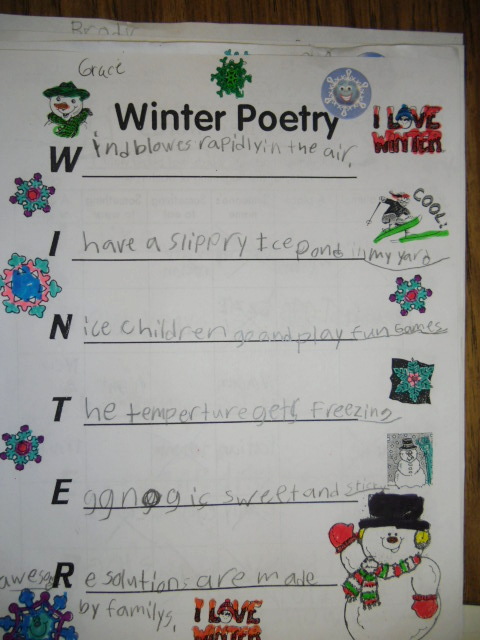 Grace
Winter Poetry
I LOVE WINTER
Windblowes rapidly in the air.
COOL!
I have a slippry Ice pond in my yard
Nice children go and play fun Games
The temperture gets freezing
Eggnog is sweet and
Resolutions are made
by familys.
I LOVE WINTER